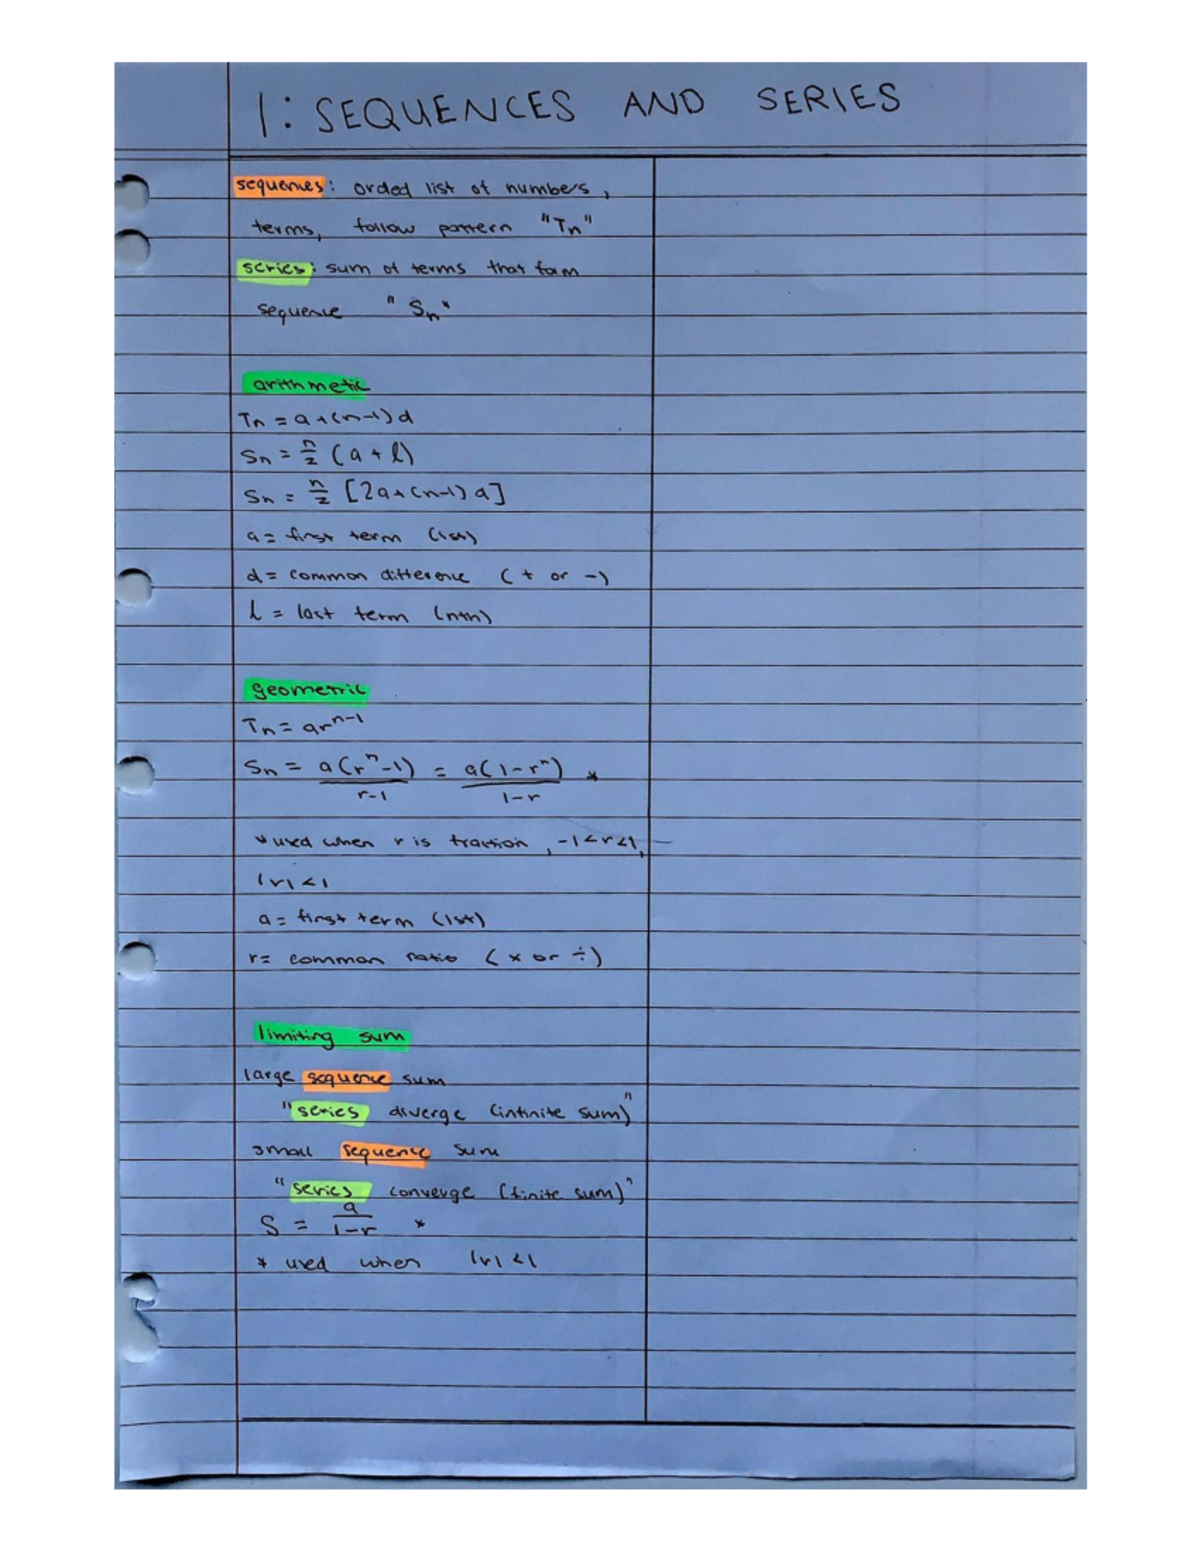 1: SEQUENCES AND SERIES
sequences: orded list of numbers,
terms, follow pattern "Tn"
series: sum of terms that form
sequence "Sn"
arithmetic
Tn = a+(n-1)d
Sn = n/2 (a + l)
Sn = n/2 [2a+(n-1)d]
a = first term (1st)
d = common difference (+ or -)
l = last term (nth)
geometric
Tn = ar^n-1
Sn = a(r^n-1)/r-1 = a(1-r^n)/1-r *
* used when r is fraction, -1<r<1,
|r|<1
a = first term (1st)
r= common ratio (× or ÷)
limiting sum
large sequence sum
"series diverge (infinite sum)"
small sequence sum
"series converge (finite sum)"
S = a/1-r *
* used when |r|<1